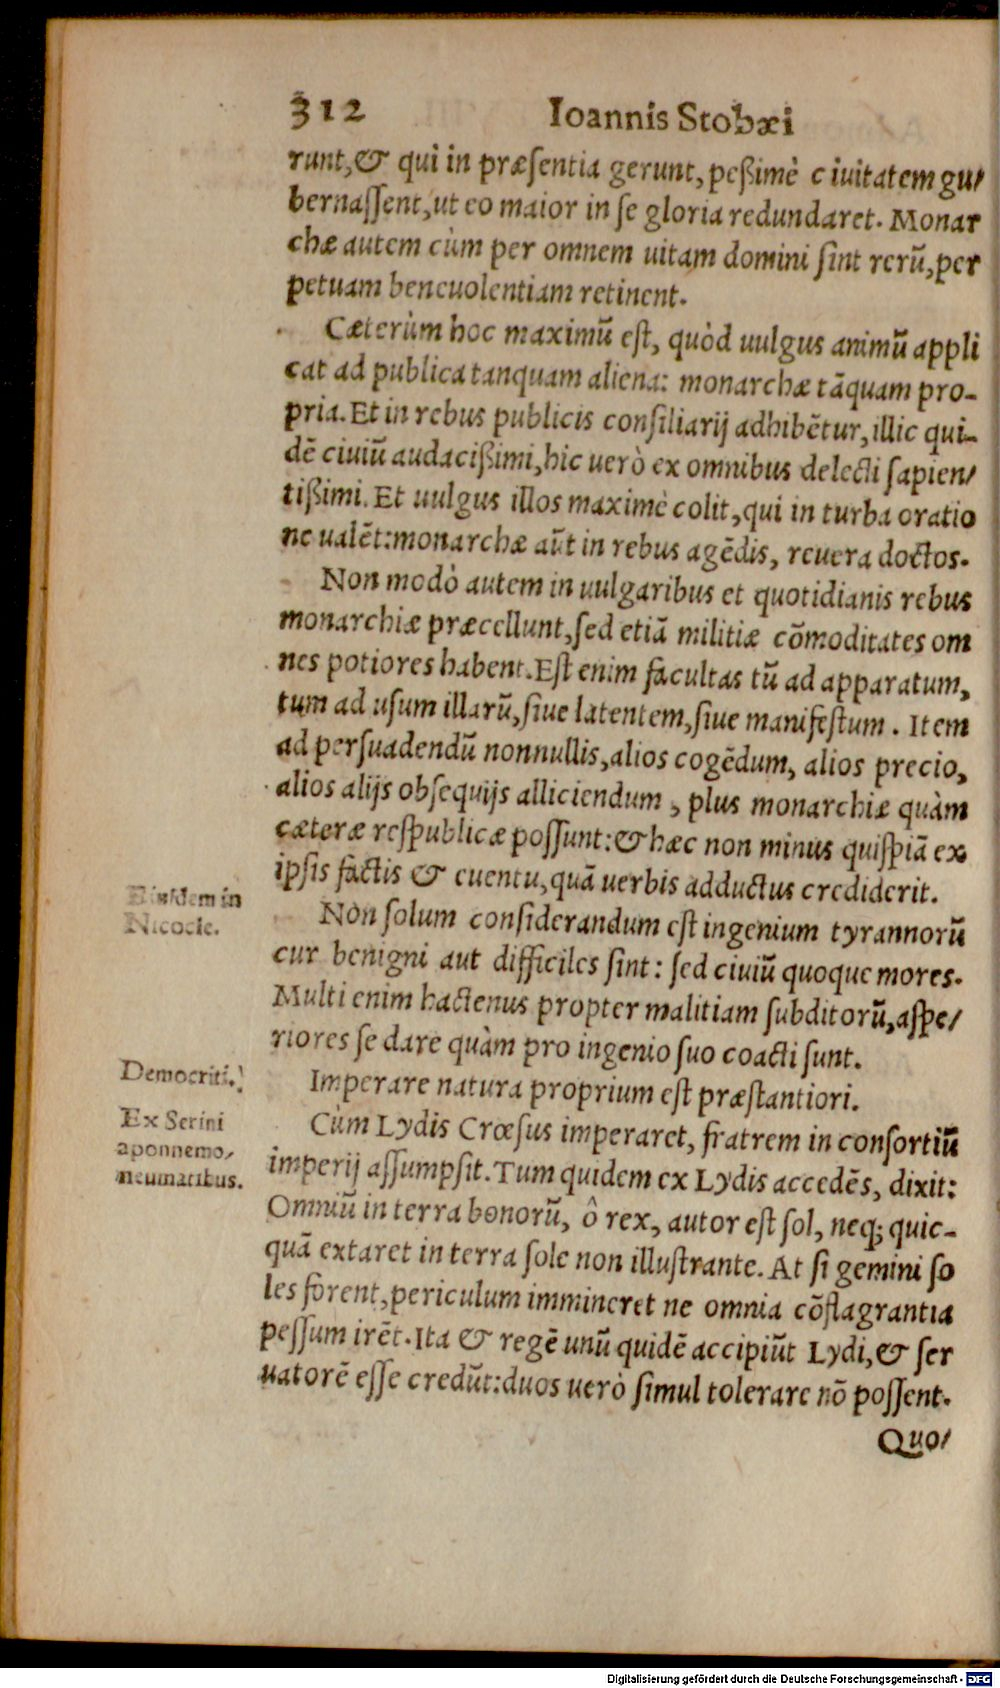 312 Ioannis Stobæi
runt, & qui in præſentia gerunt, peßimè ciuitatem gu/
bernaſſent, ut eo maior in ſe gloria redundaret. Monar
chæ autem cùm per omnem uitam domini ſint rerũ, per
petuam beneuolentiam retinent.
Cæterùm hoc maximũ eſt, quòd uulgus animũ appli
cat ad publica tanquam aliena: monarchæ tãquam pro-
pria. Et in rebus publicis conſiliarij adhibẽtur, illic qui-
dẽ ciuiũ audacißimi, hic uerò ex omnibus delecti ſapien/
tißimi. Et uulgus illos maximè colit, qui in turba oratio
ne ualẽt: monarchæ aũt in rebus agẽdis, reuera doctos.
Non modò autem in uulgaribus et quotidianis rebus
monarchiæ præcellunt, ſed etiã militiæ cõmoditates om
nes potiores habent. Eſt enim facultas tũ ad apparatum,
tum ad uſum illarũ, ſiue latentem, ſiue manifeſtum. Item
ad perſuadendũ nonnullis, alios cogẽdum, alios precio,
alios alijs obſequijs alliciendum, plus monarchiæ quàm
cæteræ reſpublicæ poſſunt: & hæc non minus quiſpiã ex
ipſis factis & euentu, quã uerbis adductus crediderit.
Eiuſdem in
Nicocle.
Non ſolum conſiderandum eſt ingenium tyrannorũ
cur benigni aut difficiles ſint: ſed ciuiũ quoque mores.
Multi enim hactenus propter malitiam ſubditorũ, aſpe/
riores ſe dare quàm pro ingenio ſuo coacti ſunt.
Democriti.
Imperare natura proprium eſt præſtantiori.
Ex Serini
aponnemo/
neumatibus.
Cùm Lydis Crœſus imperaret, fratrem in conſortiũ
imperij aſſumpſit. Tum quidem ex Lydis accedẽs, dixit:
Omniũ in terra bonorũ, ô rex, autor eſt ſol, neq; quic-
quã extaret in terra ſole non illuſtrante. At ſi gemini ſo
les forent, periculum immineret ne omnia cõflagrantia
peſſum irẽt. Ita & regẽ unũ quidẽ accipiũt Lydi, & ſer
uatorẽ eſſe credũt: duos uerò ſimul tolerare nõ poſſent.
Quo/
Digitalisierung gefördert durch die Deutsche Forschungsgemeinschaft - DFG